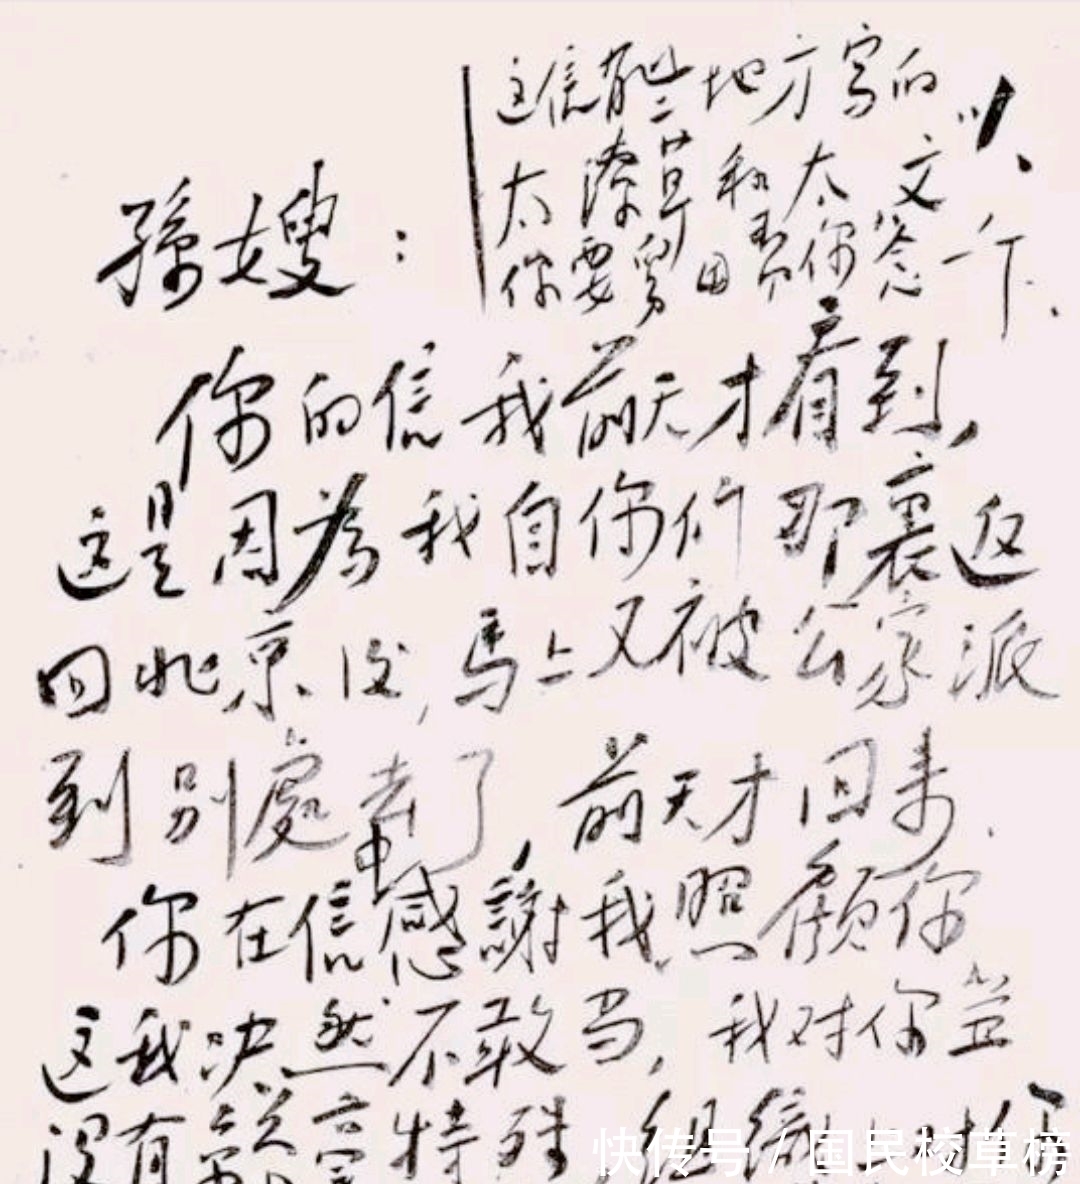 这信有些地方写的
太潦草和太文
你要舅因即你念一下.
孫嫂：
你的信我前天才看到,
这是因為我自你们那裏返
回北京后,馬上又被公家派
到别處去了,前天才回来.
你在信中感謝我照顧你
这我决然不敢当,我对你並
没有 特殊,组
快传号 / 国民校草榜